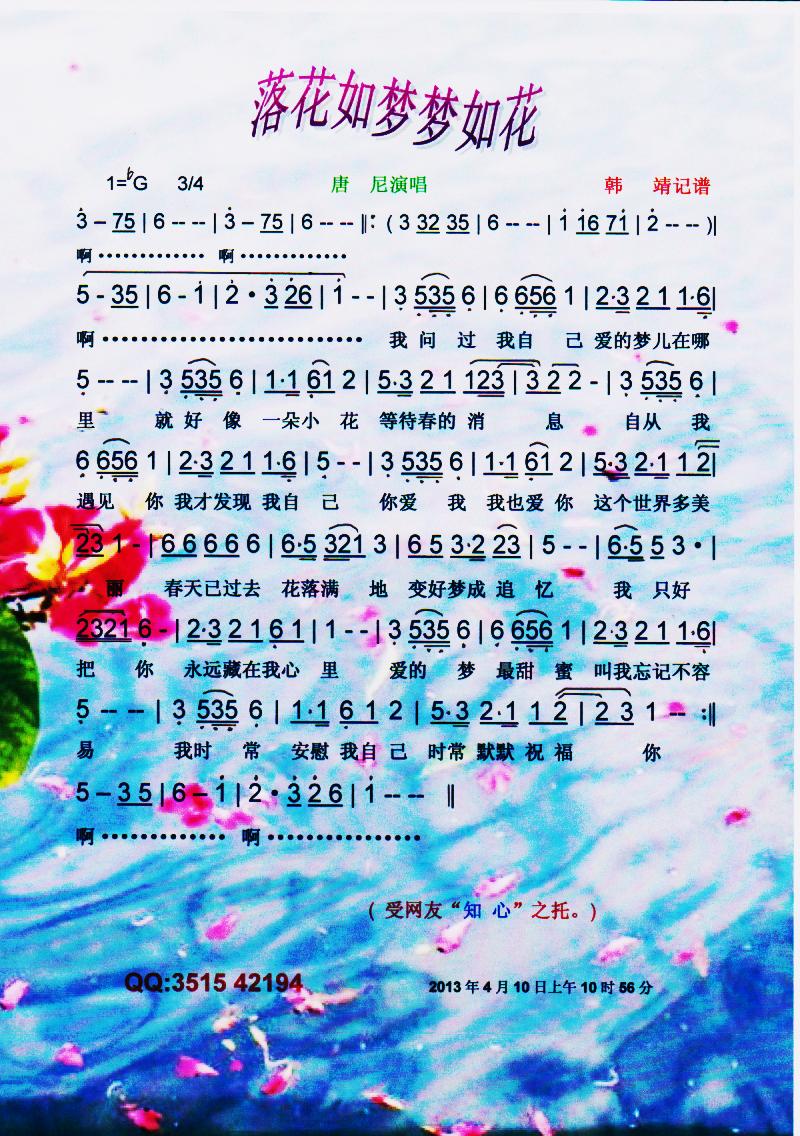 落花如梦梦如花
1=♭G 3/4 唐 尼演唱 韩 靖记谱
3 – 75 | 6 -- -- | 3 – 75 | 6 -- -- ‖: ( 3 32 35 | 6 -- -- | 1 16 71 | 2 -- -- )|
啊············· 啊·············
5 - 35 | 6 - 1 | 2 · 3 26 | 1 - - | 3 535 6 | 6 656 1 | 2·3 2 1 1·6 |
啊······························ 我 问 过 我自 己 爱的梦儿在哪
5 -- -- | 3 535 6 | 1·1 61 2 | 5·3 2 1 123 | 3 2 2 - | 3 535 6 |
里 就 好 像 一朵小 花 等待春的 消 息 自从 我
6 656 1 | 2·3 2 1 1·6 | 5 - - | 3 535 6 | 1·1 61 2 | 5·3 2·1 1 2 |
遇见 你 我才发现 我自 己 你爱 我 我也爱 你 这个世界多美
23 1 - | 6 6 6 6 6 | 6·5 321 3 | 6 5 3·2 23 | 5 - - | 6·5 5 3 · |
丽 春天已过去 花落满 地 变好梦成 追 忆 我 只好
2321 6 - | 2·3 2 1 6 1 | 1 - - | 3 535 6 | 6 656 1 | 2·3 2 1 1·6 |
把 你 永远藏在我心 里 爱的 梦 最甜 蜜 叫我忘记不容
5 -- -- | 3 535 6 | 1·1 6 1 2 | 5·3 2·1 1 2 | 2 3 1 -- :‖
易 我时 常 安慰 我自 己 时常 默默 祝 福 你
5 – 3 5 | 6 – 1 | 2 · 3 2 6 | 1 -- -- ‖
啊·············· 啊················
( 受网友“知 心”之托。)
QQ:3515 42194 2013 年 4 月 10 日上午 10 时 56 分